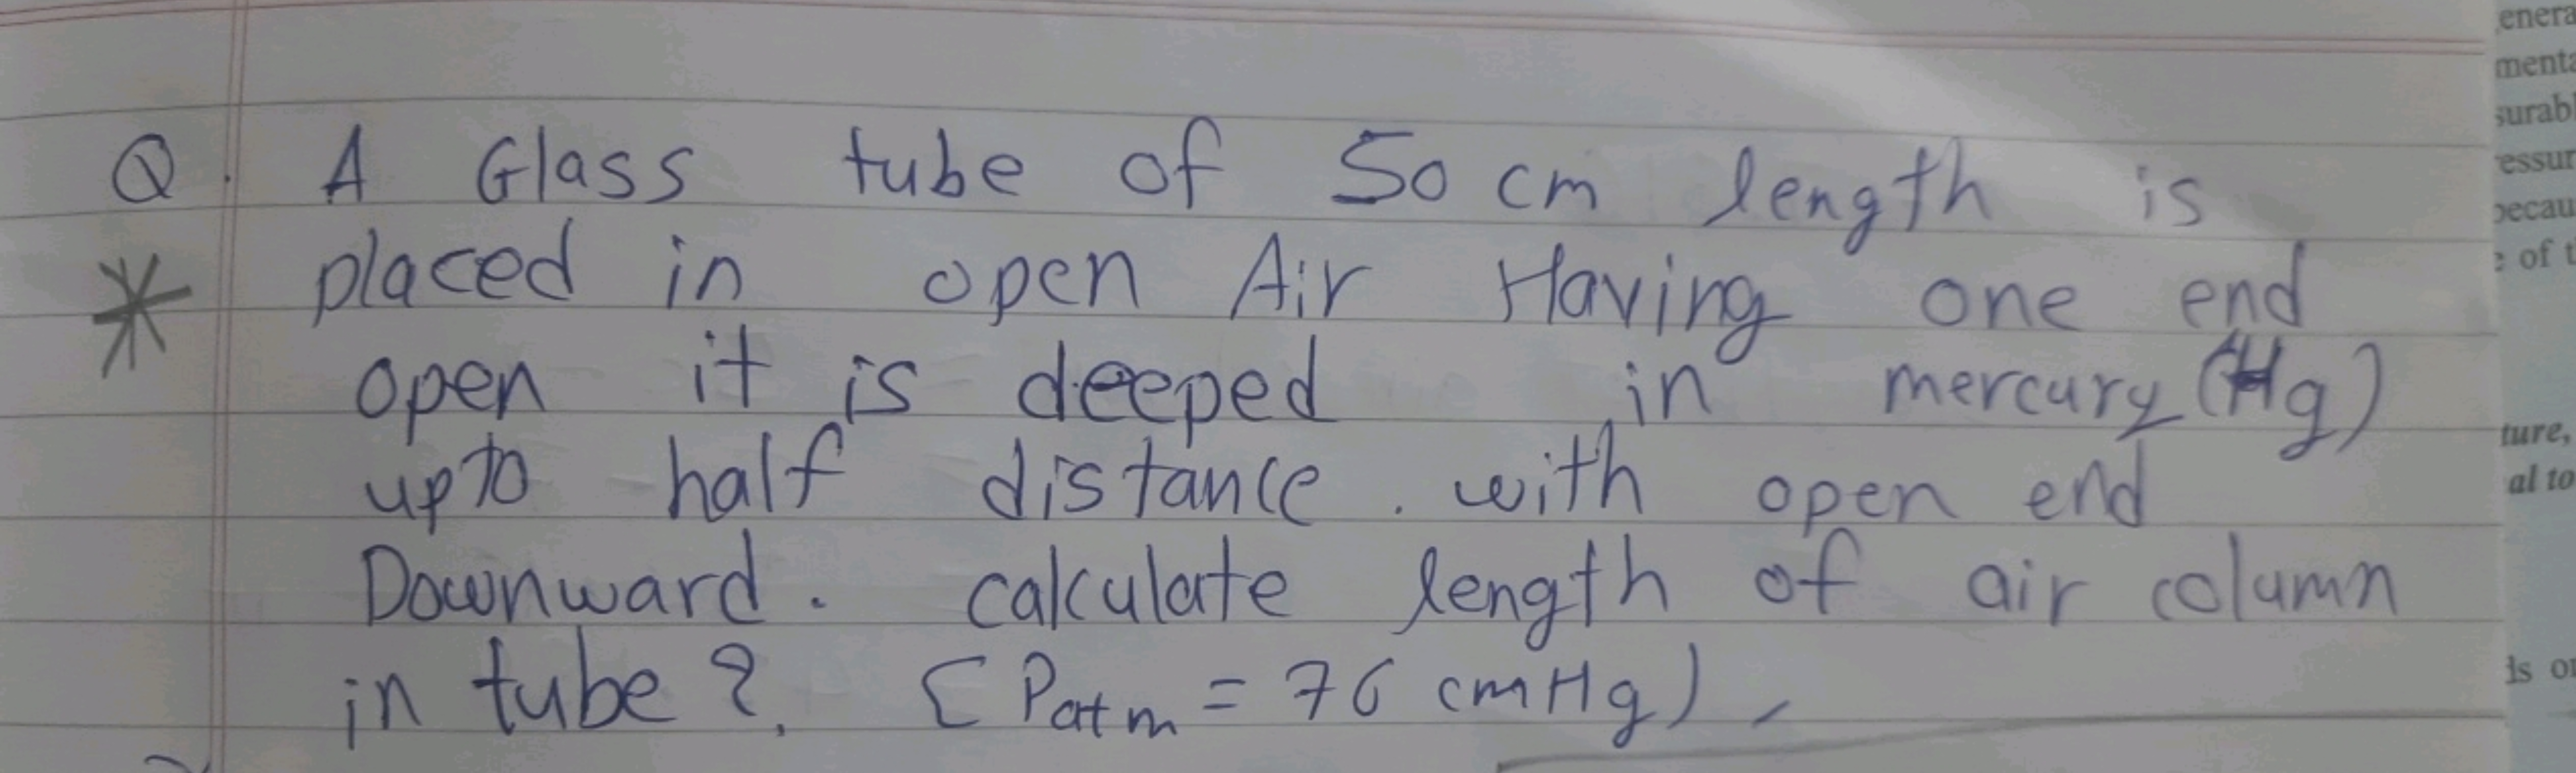 Q. A Glass tube of 50 cm length is
placed in open Air Having one end
open it is deeped in mercury (Hg)
upto half distance. with open end
Downward. calculate length of air column
in tube?. [Patm = 76 cmHg),
enera
menta
surabl
ressur
becau
e of t
ture,
al to
ls or